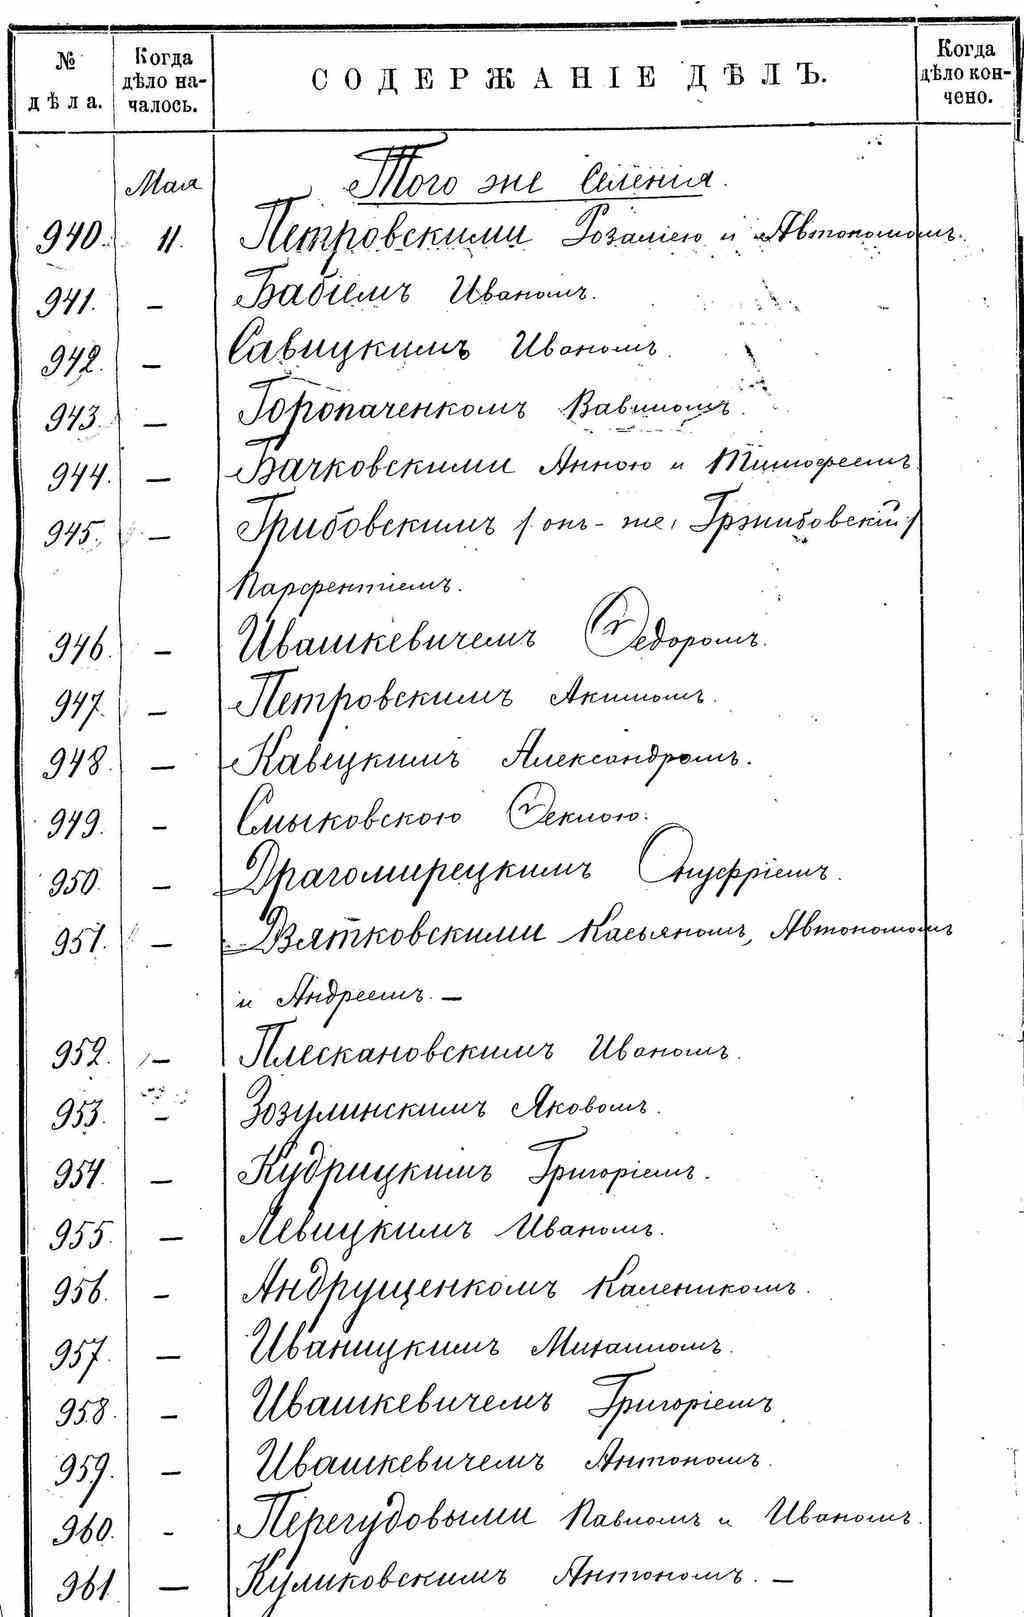 № дѣла. Когда дѣло началось. СОДЕРЖАНІЕ ДѢЛЪ. Когда дѣло кончено.
Мая Того же Селенія.
940. 11. Петровскими Розаліею и Автономомъ.
941. — Бабіемъ Иваномъ.
942. — Савицкимъ Иваномъ.
943. — Горопаченкомъ Вавиломъ.
944. — Бачковскими Анною и Тимофеемъ
945. — Грибовскимъ /: онъ-же, Гржибовскій :/
Парфентіемъ.
946. — Ивашкевичемъ Ѳедоромъ.
947. — Петровскимъ Акимомъ.
948. — Кавецкимъ Александромъ.
949. — Смыковскою Ѳеклою.
950. — Драгомирецкимъ Онуфріемъ.
951. — Дзятковскими Касьяномъ, Автономомъ
и Андреемъ. —
952. — Плескановскимъ Иваномъ.
953. — Зозулинскимъ Яковомъ.
954. — Кудрицкимъ Григоріемъ.
955. — Левицкимъ Иваномъ.
956. — Андрущенкомъ Калеником​ъ.
957. — Иваницкимъ Михаиломъ.
958. — Ивашкевичемъ Григоріемъ
959. — Ивашкевичемъ Антономъ.
960. — Перегудовыми Павломъ и Иваномъ.
961 — Куликовскимъ Антономъ. —